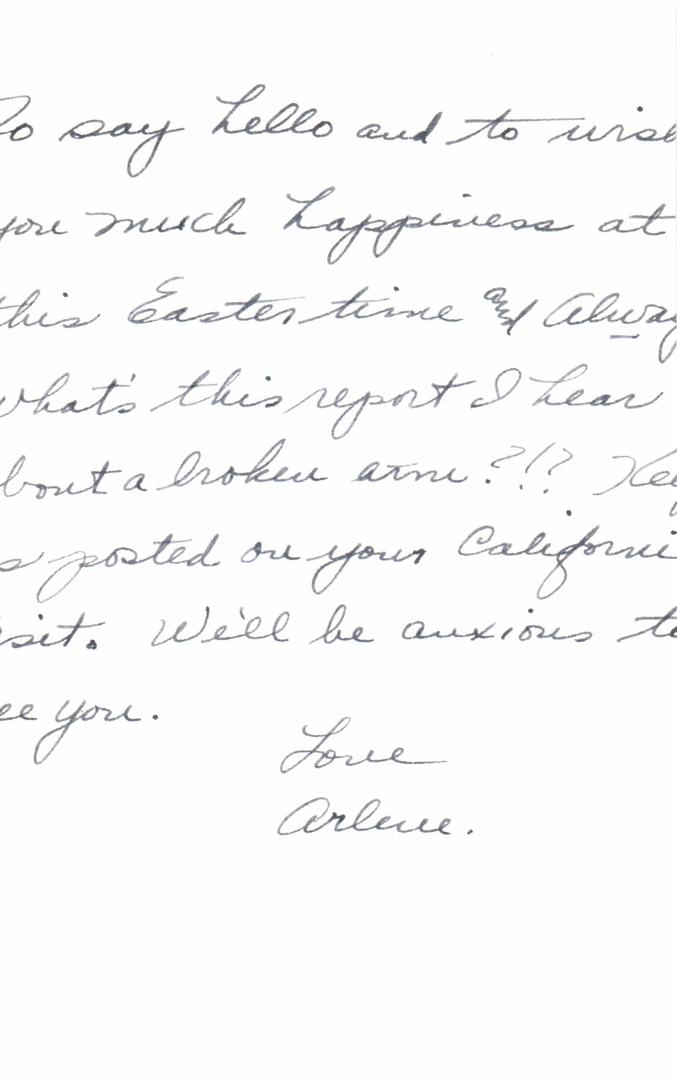 To say hello and to wish
you much happiness at
this Easter time and Always
what's this report I hear
bout a broken arm?!? Kee
s posted on your Californi
isit. We'll be anxious to
ee you.
Love
Arlene.